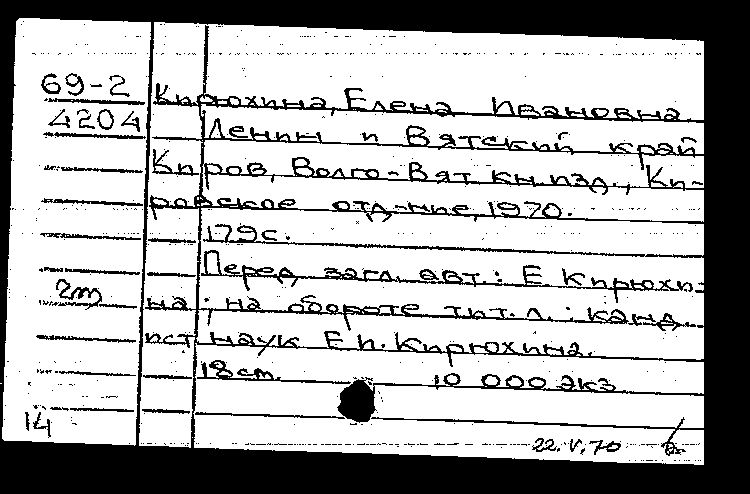 69-2 Кирюхина, Елена Ивановна.
4204 Ленин и Вятский край
Киров, Волго-Вят. кн. изд., Ки-
ровское отд-ние, 1970.
179с.
Перед загл. авт.: Е Кирюхи-
2т на ; на обороте тит. л. : канд.
ист наук Е И. Кирюхина.
18 см. 10 000 экз
14
22.V.70